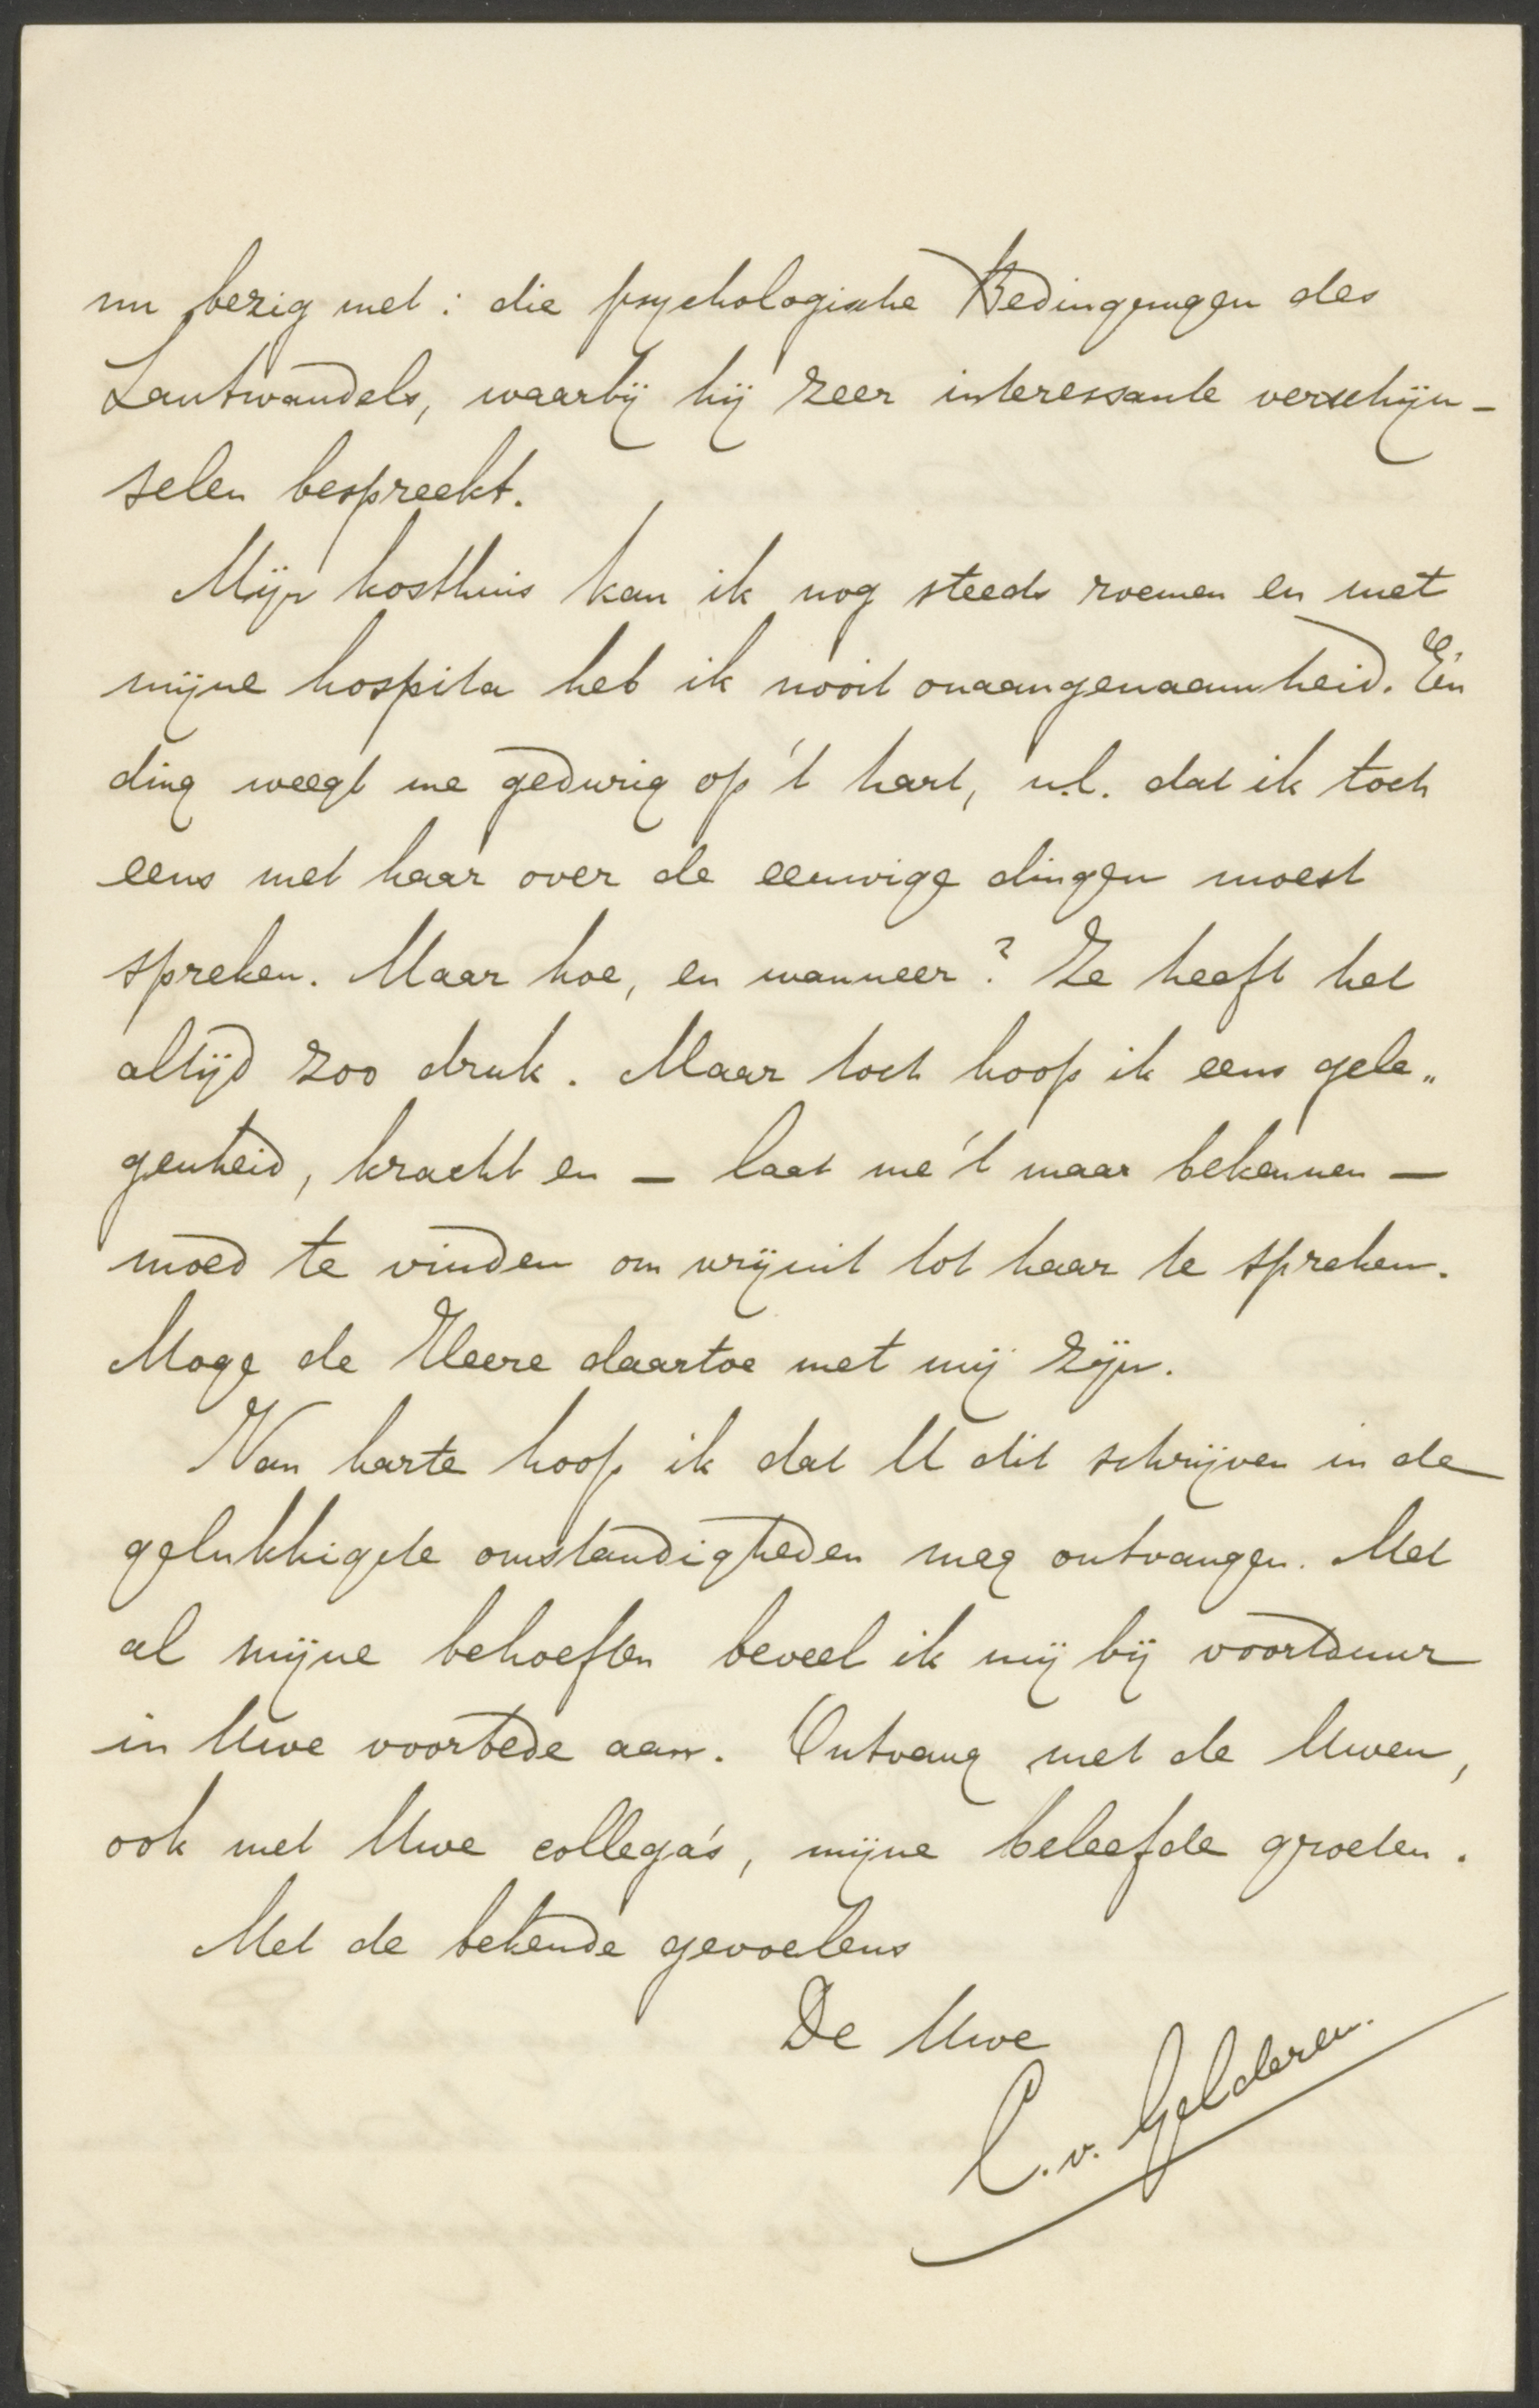 nu bezig met: die psychologische Bedingungen des
Lautwandels, waarbij hij zeer interessante verschijn-
selen bespreekt.
Mijn kosthuis kan ik nog steeds roemen en met
mijne hospita heb ik nooit onaangenaamheid. Eén
ding weegt me gedurig op 't hart, n.l. dat ik toch
eens met haar over de eeuwige dingen moest
spreken. Maar hoe, en wanneer? Ze heeft het
altijd zoo druk. Maar toch hoop ik eens gele„
genheid, kracht en — laat me 't maar bekennen —
moed te vinden om vrijuit tot haar te spreken.
Moge de Heere daartoe met mij zijn.
Van harte hoop ik dat U dit schrijven in de
gelukkigste omstandigheden mag ontvangen. Met
al mijne behoeften beveel ik mij bij voortduur
in Uwe voorbede aan. Ontvang met de Uwen,
ook met Uwe collega's, mijne beleefde groeten.
Met de bekende gevoelens
De Uwe
C. v. Gelderen.